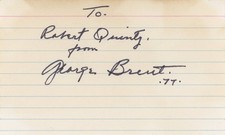 To.
Robert Quintz.
from
George Brent.
.77.